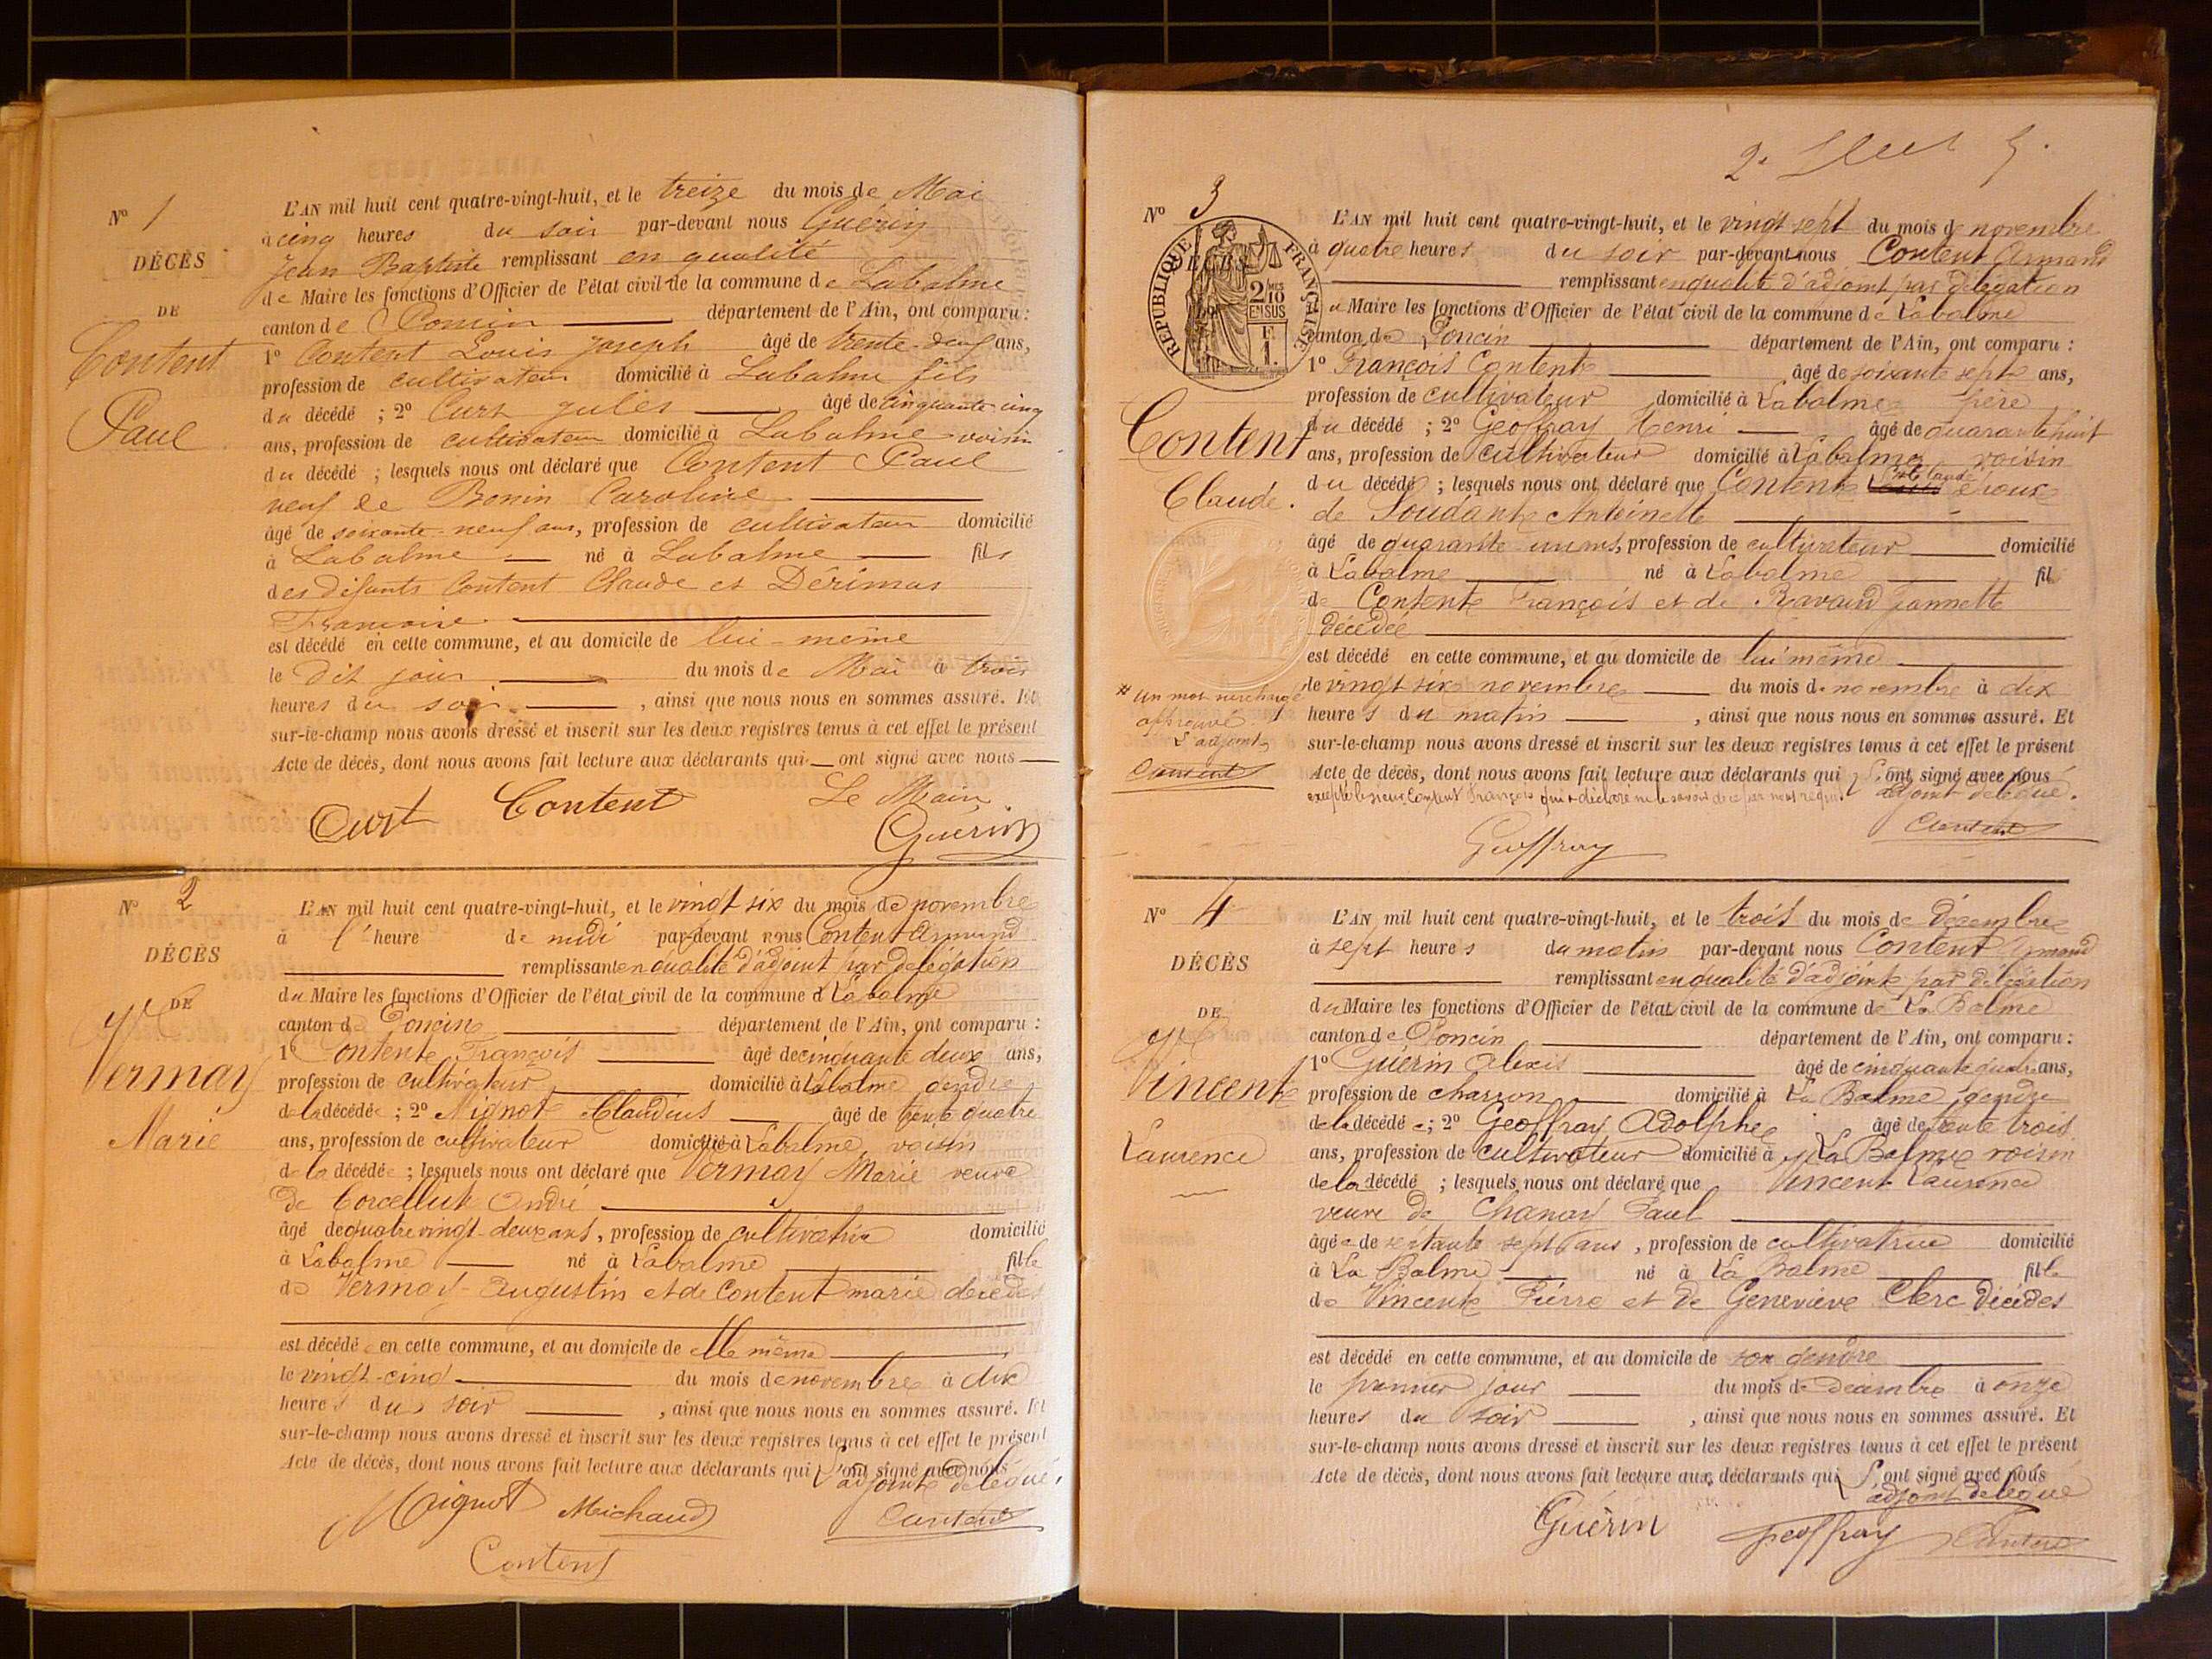 N° 1
DÉCÈS
DE
Content
Paul
L'AN mil huit cent quatre-vingt-huit, et le treize du mois de Mai
à cinq heures du soir par-devant nous Guérin
Jean Baptiste remplissant en qualité
de Maire les fonctions d'Officier de l'état civil de la commune de Labalme
canton de Poncin département de l'Ain, ont comparu :
1° Content Louis Joseph âgé de trente-deux ans,
profession de cultivateur domicilié à Labalme fils
du décédé ; 2° Curt Jules âgé de cinquante-cinq
ans, profession de cultivateur domicilié à Labalme voisin
du décédé ; lesquels nous ont déclaré que Content Paul
veuf de Bonin Caroline
âgé de soixante-neuf ans, profession de cultivateur domicilié
à Labalme né à Labalme fils
des défunts Content Claude et Dérimas
est décédé en cette commune, et au domicile de lui-même
le dit jour du mois de Mai à trois
heures du soir, ainsi que nous nous en sommes assuré. Et
sur-le-champ nous avons dressé et inscrit sur les deux registres tenus à cet effet le présent
Acte de décès, dont nous avons fait lecture aux déclarants qui ont signé avec nous
Curt Content Le Maire
Guérin
N° 2
DÉCÈS
DE
Ve
Vermay
Marie
L'AN mil huit cent quatre-vingt-huit, et le vingt six du mois de novembre
à l'heure de midi par-devant nous Content Armand
remplissant en qualité d'adjoint par délégation
du Maire les fonctions d'Officier de l'état civil de la commune d Labalme
canton de Poncin département de l'Ain, ont comparu :
1° Content François âgé de cinquante deux ans,
profession de cultivateur domicilié à Labalme gendre
de la décédée ; 2° Mignot Claudius âgé de trente quatre
ans, profession de cultivateur domicilié à Labalme voisin
de la décédée ; lesquels nous ont déclaré que Vermay Marie veuve
de André
âgé de quatre vingt-deux ans, profession de cultivatrice domicilié
à Labalme né à Labalme fille
de Vermay Augustin et de Content marie décédés
est décédé en cette commune, et au domicile de elle même
le vingt-cinq du mois de novembre à dix
heures du soir, ainsi que nous nous en sommes assuré. Et
sur-le-champ nous avons dressé et inscrit sur les deux registres tenus à cet effet le présent
Acte de décès, dont nous avons fait lecture aux déclarants qui ont signé avec nous
L'adjoint délégué,
Mignot Michaud Content
Content
N° 3
RÉPUBLIQUE FRANÇAISE
2/10 EN SUS
F. 1.
Content
Claude.
L'AN mil huit cent quatre-vingt-huit, et le vingt sept du mois de novembre
à quatre heures du soir par-devant nous Content Armand
remplissant en qualité d'adjoint par délégation
du Maire les fonctions d'Officier de l'état civil de la commune de Labalme
canton de Poncin département de l'Ain, ont comparu :
1° François Content âgé de soixante sept ans,
profession de cultivateur domicilié à Labalme père
du décédé ; 2° Geoffray Henri âgé de quarante huit
ans, profession de cultivateur domicilié à Labalme voisin
du décédé ; lesquels nous ont déclaré que Content Claude époux
de Soudant Antoinette
âgé de quarante un ans, profession de cultivateur domicilié
à Labalme né à Labalme fil
de Content François et de Ravaud Jannette
décédée
est décédé en cette commune, et au domicile de lui même
le vingt six novembre du mois de novembre à dix
heures du matin, ainsi que nous nous en sommes assuré. Et
sur-le-champ nous avons dressé et inscrit sur les deux registres tenus à cet effet le présent
Acte de décès, dont nous avons fait lecture aux déclarants qui ont signé avec nous
excepté le sieur Content François qui a déclaré ne le savoir de ce par nous requis. L'adjoint délégué.
Un mot surchargé
approuvé
L'adjoint
Content
Geoffray Content
N° 4
DÉCÈS
DE
Ve
Vincent
Laurence
L'AN mil huit cent quatre-vingt-huit, et le trois du mois de décembre
à sept heures du matin par-devant nous Content Armand
remplissant en qualité d'adjoint par délégation
du Maire les fonctions d'Officier de l'état civil de la commune de La Balme
canton de Poncin département de l'Ain, ont comparu :
1° Guérin Alexis âgé de cinquante quatre ans,
profession de charron domicilié à La Balme gendre
de la décédée ; 2° Geoffray Adolphe âgé de trente trois
ans, profession de cultivateur domicilié à La Balme voisin
de la décédé ; lesquels nous ont déclaré que Vincent Laurence
veuve de Chanay Paul
âgée de septante sept ans, profession de cultivatrice domicilié
à La Balme né à La Balme fille
de Vincent Pierre et de Geneviève Clerc décédés
est décédé en cette commune, et au domicile de son gendre
le premier jour du mois de décembre à onze
heures du soir, ainsi que nous nous en sommes assuré. Et
sur-le-champ nous avons dressé et inscrit sur les deux registres tenus à cet effet le présent
Acte de décès, dont nous avons fait lecture aux déclarants qui ont signé avec nous
L'adjoint délégué
Guérin Geoffray Content